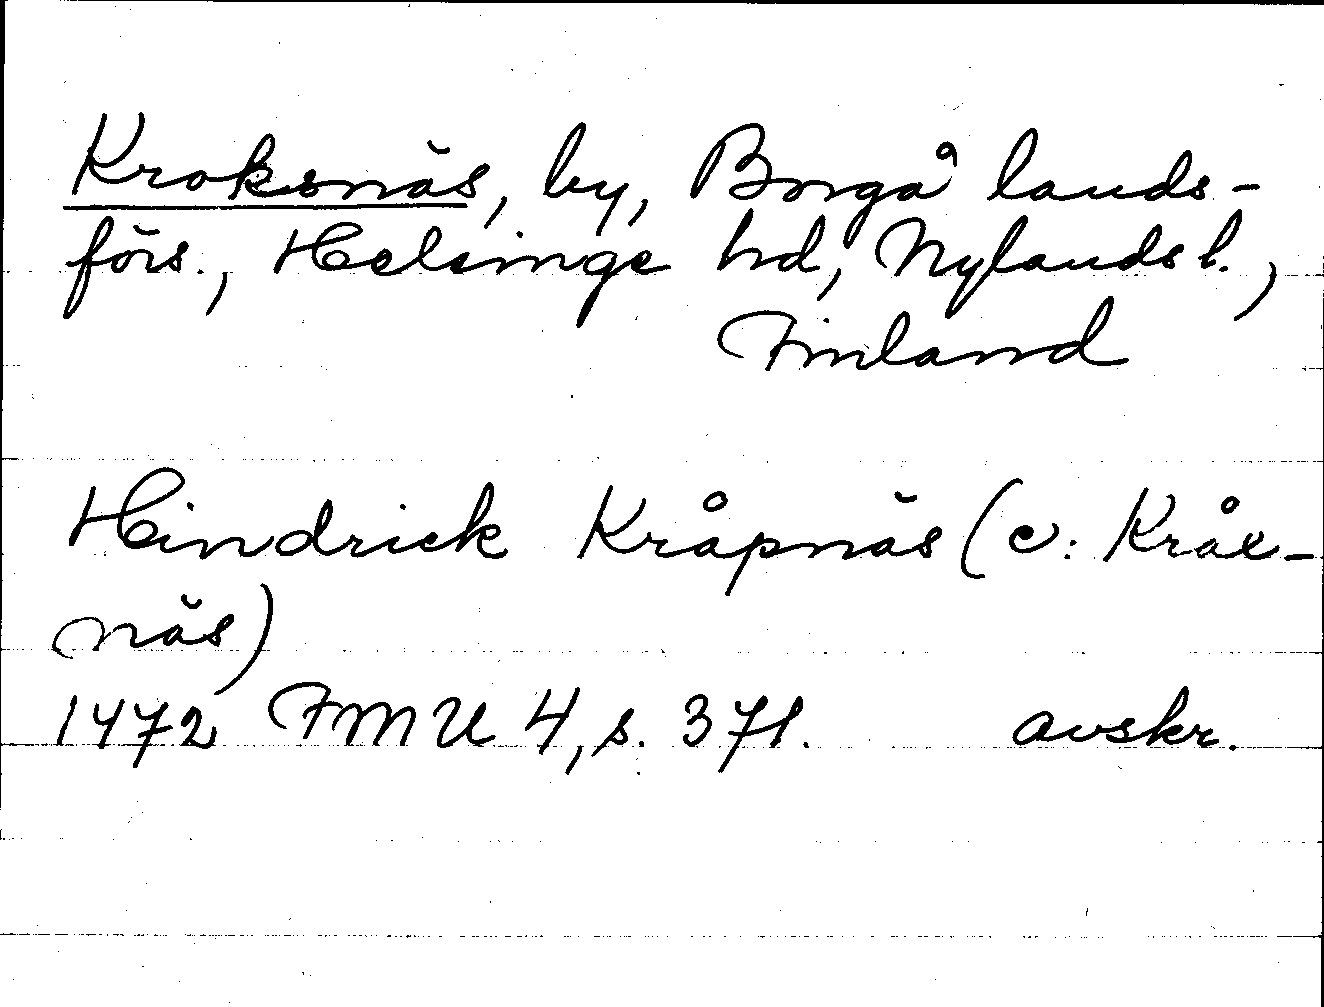 Kroksnäs, by, Borgå lands-
förs., Helsinge hd, Nylands l.,
Finland
Hindrick Kråpnäs (ɔ: Kråx-
näs)
1472 FMU 4, s. 371. avskr.